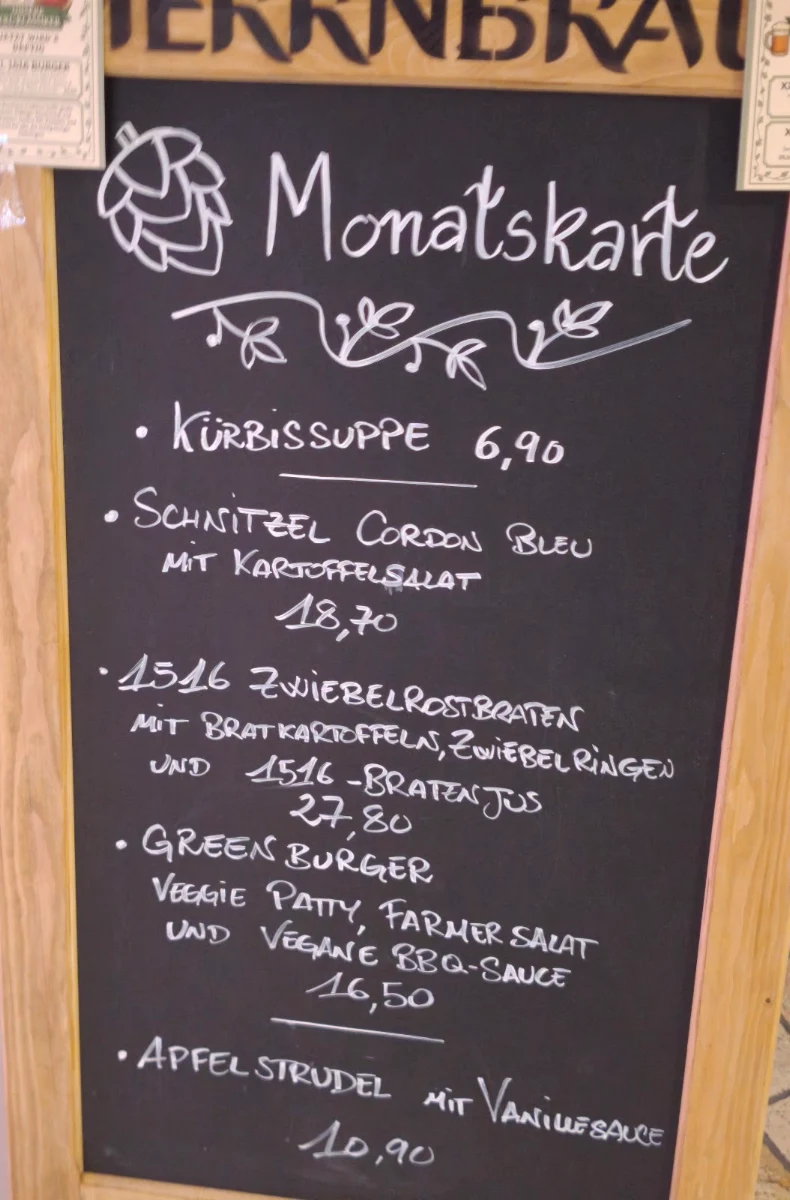 HERRNBRÄU
JETZT WIRD'S
DEFTIG
Monatskarte
• KÜRBISSUPPE 6,90
• SCHNITZEL CORDON BLEU
MIT KARTOFFELSALAT
18,70
• 1516 ZWIEBELROSTBRATEN
MIT BRATKARTOFFELN, ZWIEBELRINGEN
UND 1516-BRATENJUS
27,80
• GREEN BURGER
VEGGIE PATTY, FARMER SALAT
UND VEGANE BBQ-SAUCE
16,50
• APFELSTRUDEL MIT VANILLESAUCE
10,90